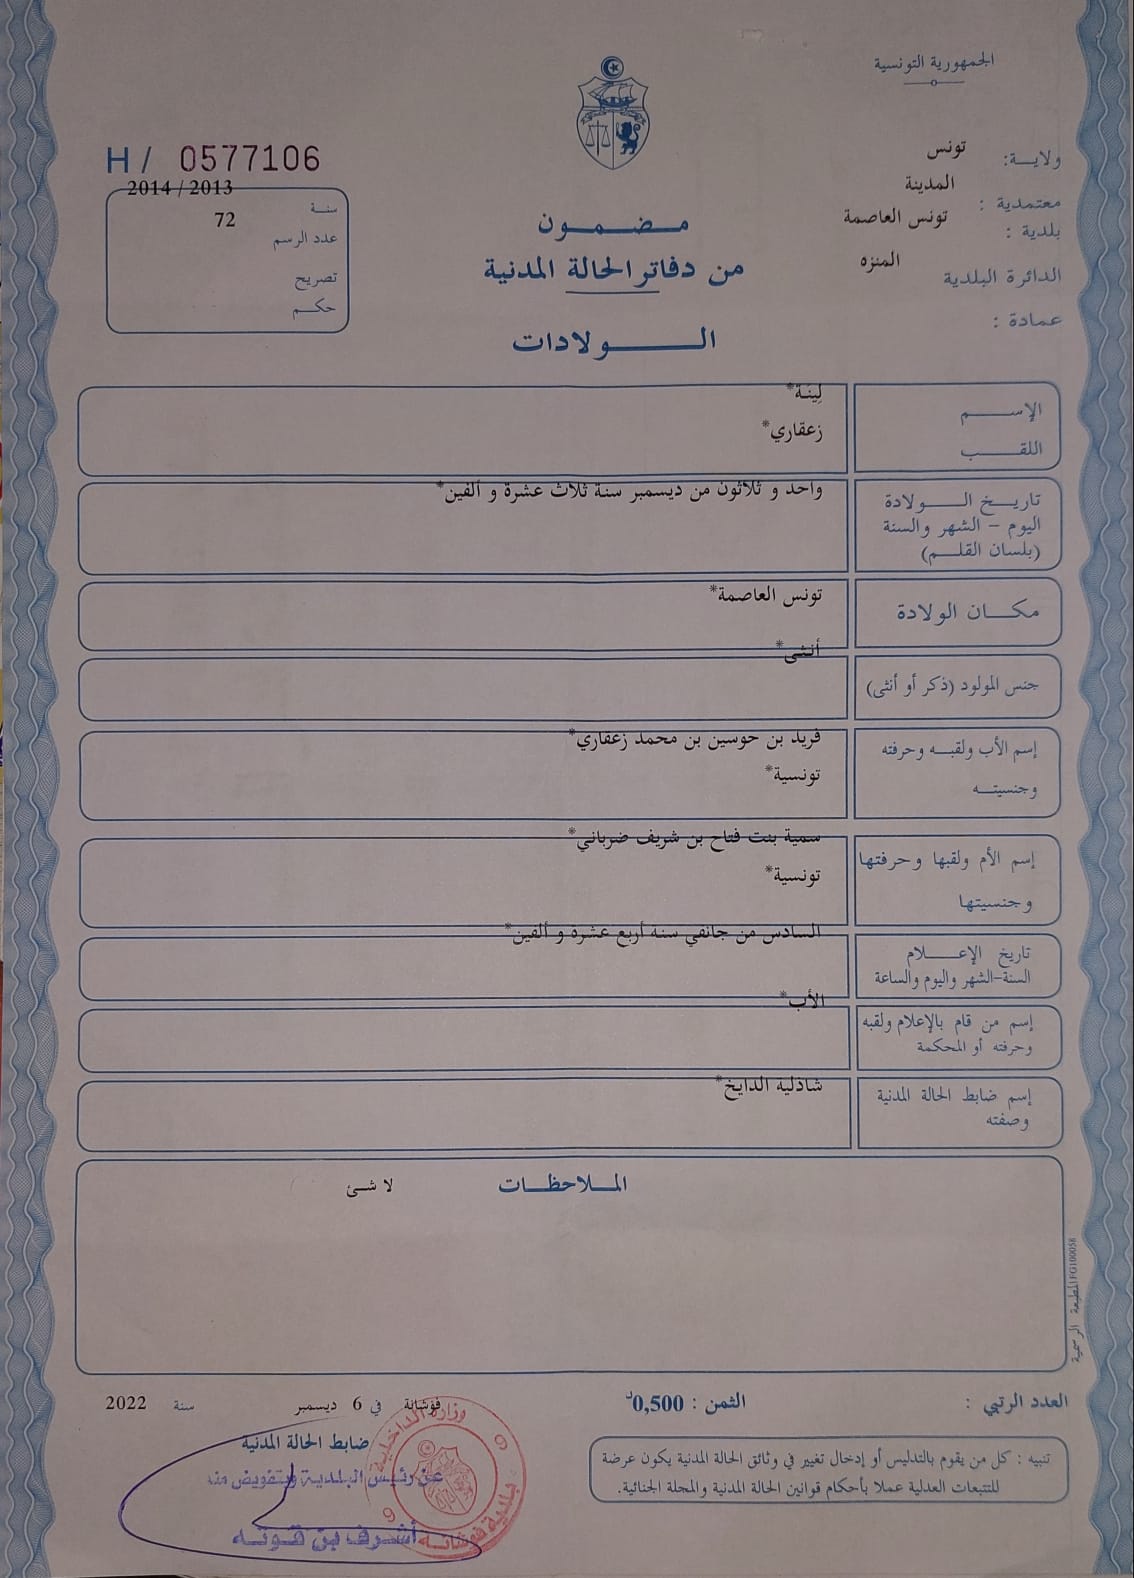 الجمهورية التونسية
ولايـــة: تونس
معتمدية : المدينة
بلدية : تونس العاصمة
الدائرة البلدية المنزه
عمادة :
H/ 0577106
سنـة 2014 / 2013
عدد الرسم 72
تصريح
حكـم
مـضـمـون
من دفاتر الحالة المدنية
الـــولادات
الإســـم لِينَة*
اللقـــب زعقاري*
تاريـخ الـــولادة واحد و ثلاثون من ديسمبر سنة ثلاث عشرة و ألفين*
اليوم – الشهر والسنة
(بلسان القلـــم)
مكـــان الولادة تونس العاصمة*
جنس المولود (ذكر أو أنثى) أنثى*
إسم الأب ولقبـه وحرفته فريد بن حوسين بن محمد زعقاري*
وجنسيتـــه تونسية*
إسم الأم ولقبها وحرفتها سمية بنت فتاح بن شريف ضرباني*
وجنسيتها تونسية*
تاريخ الإعـــلام السادس من جانفي سنة أربع عشرة و ألفين*
السنة-الشهر واليوم والساعة
إسم من قام بالإعلام ولقبه الأب*
وحرفته أو المحكمة
إسم ضابط الحالة المدنية شاذلية الدايخ*
وصفته
المـــلاحظـــات لا شئ
المطبعة الرسمية FG100058
العدد الرتبي :
الثمن : 0,500د
فوشانة في 6 ديسمبر سنة 2022
ضابط الحالة المدنية
عن رئيس البلدية وبتفويض منه
أشرف بن قوته
وزارة الداخلية
بلدية فوشانة
9 9
تنبيه : كل من يقوم بالتدليس أو إدخال تغيير في وثائق الحالة المدنية يكون عرضة
للتتبعات العدلية عملا بأحكام قوانين الحالة المدنية والمجلة الجنائية.